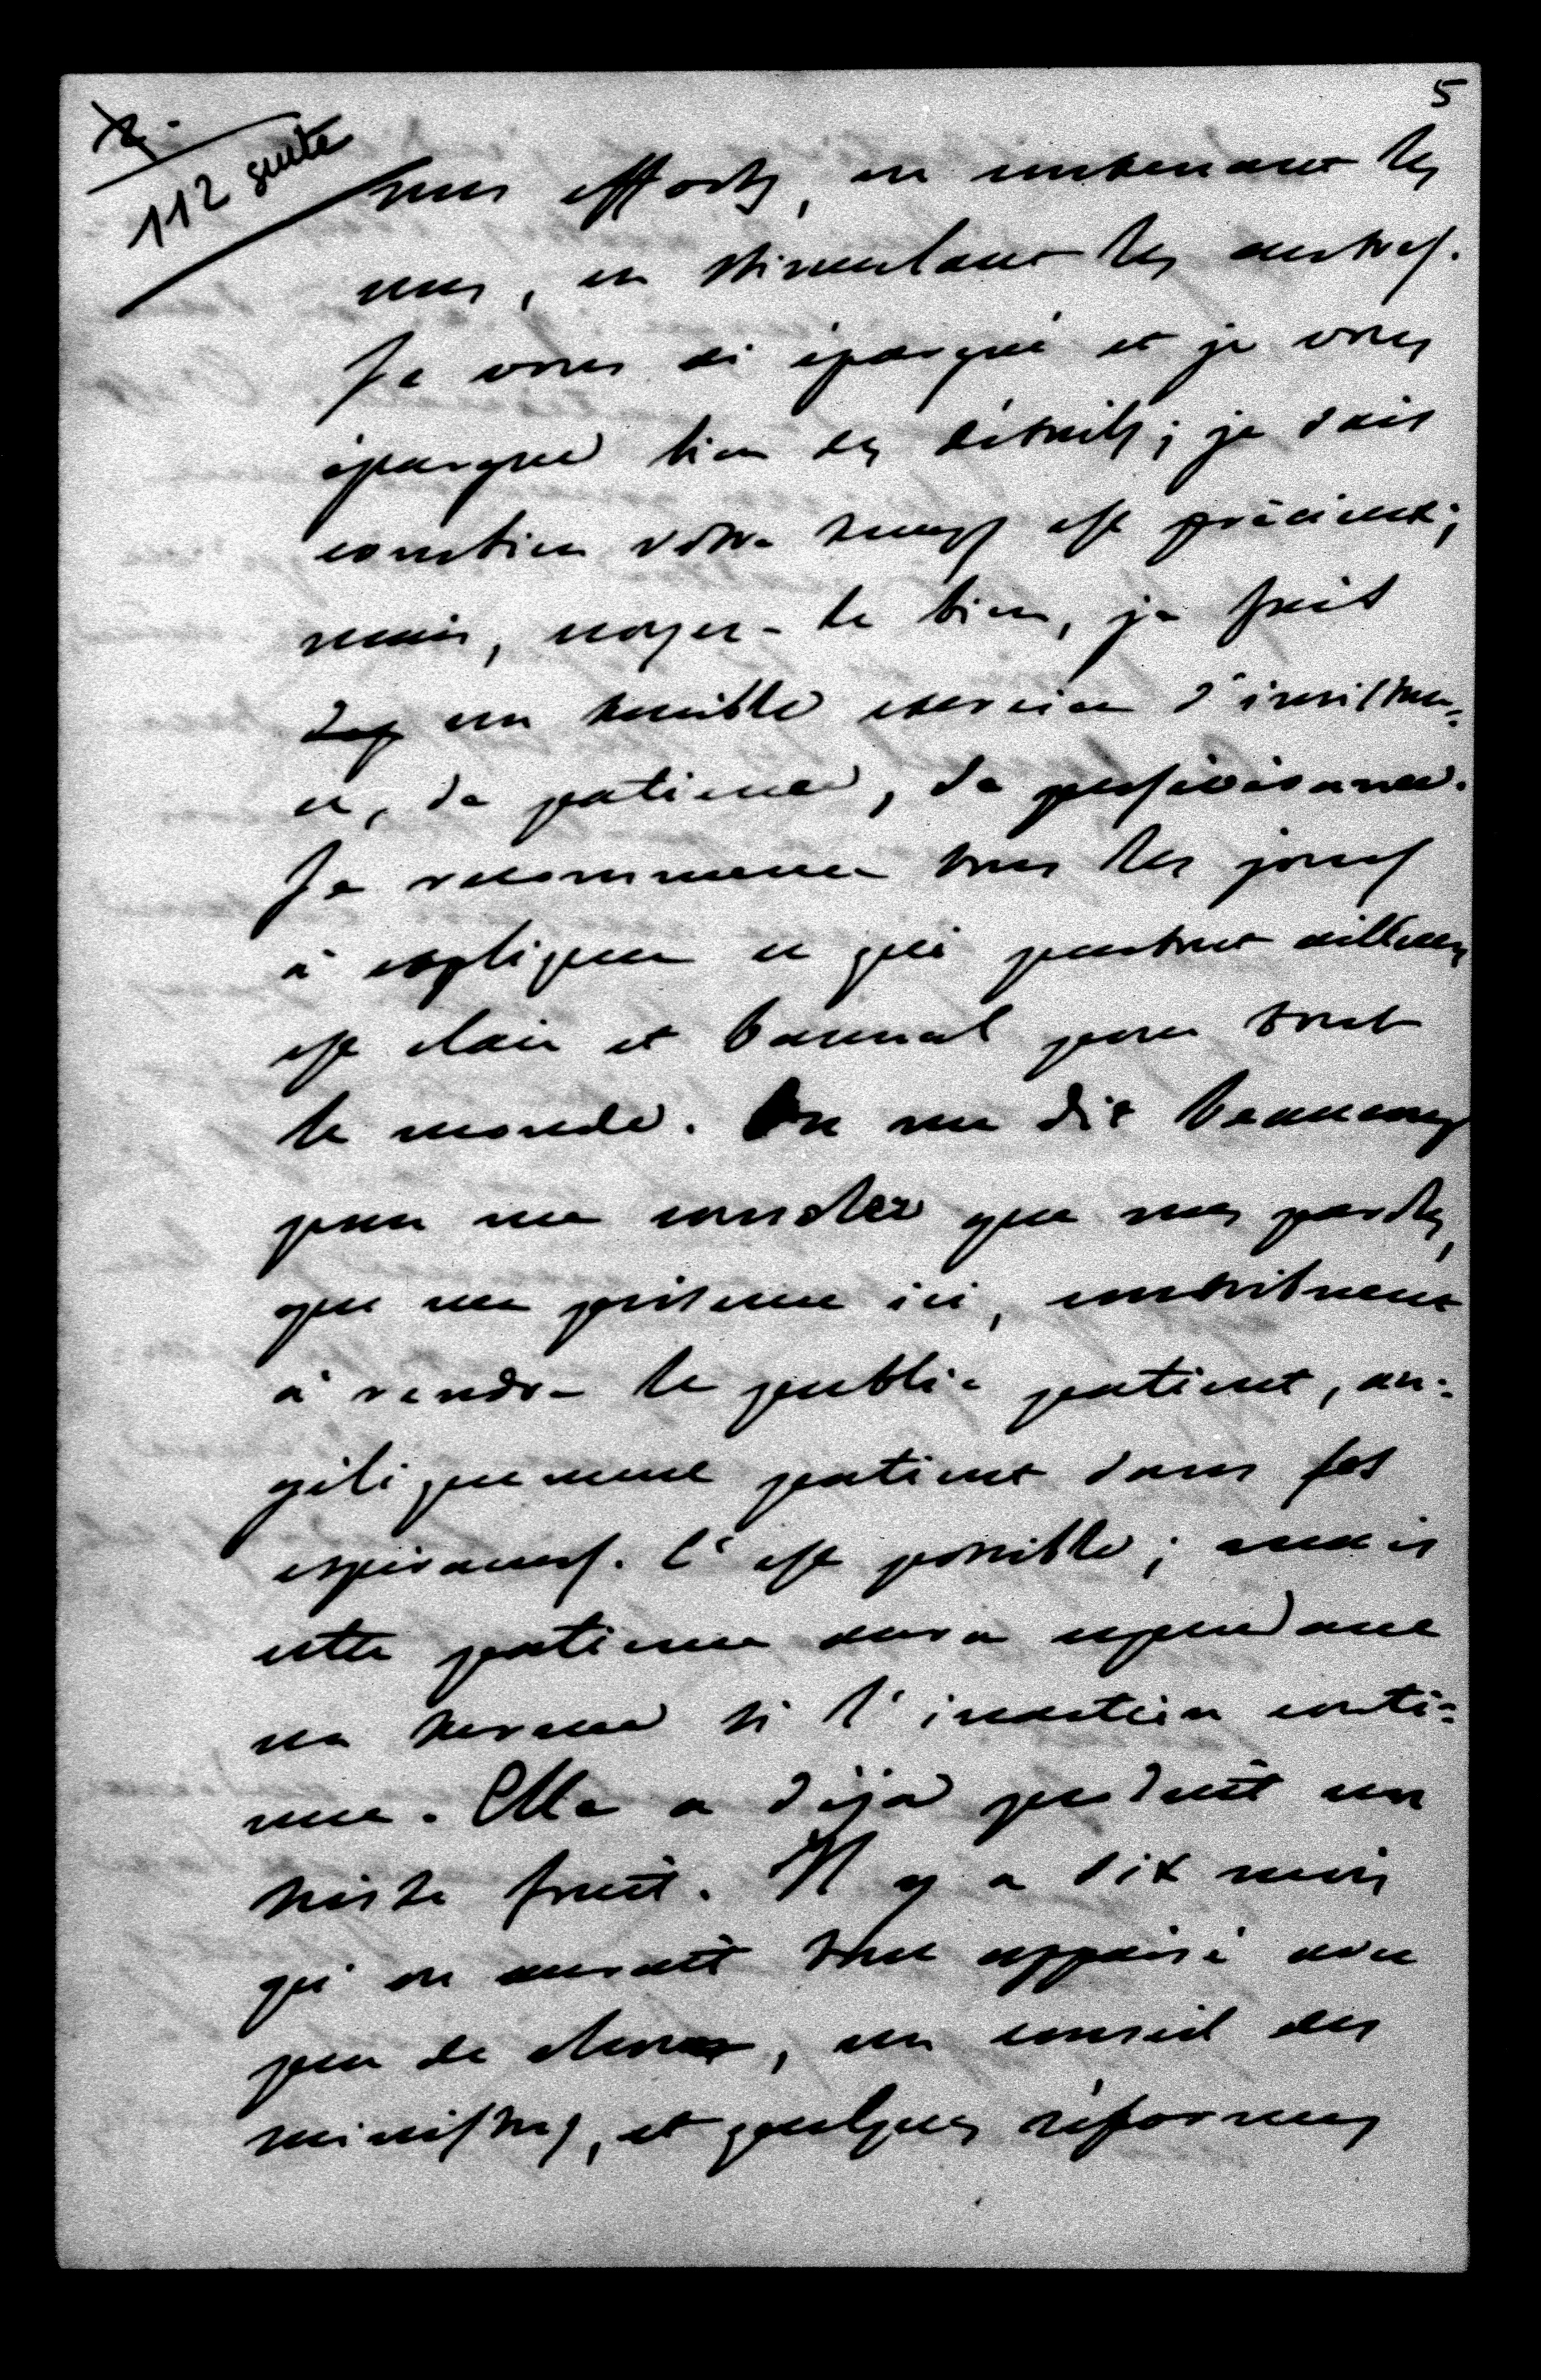 5
112 suite
mes efforts, en contenant les
uns, en stimulant les autres.
Je vous ai épargné et je vous
épargne bien des détails; je sais
combien votre temps est précieux;
mais, croyez-le bien, je fais
un terrible exercice d'insistan-
ce, de patience, de persévérance.
Je recommence tous les jours
à expliquer ce qui partout ailleurs
est clair et bannal pour tout
le monde. On me dit beaucoup
pour me consoler que mes paroles,
que ma présence ici, contribuent
à rendre le public patient, an-
géliquement patient dans ses
espérances. C'est possible; mais
cette patience aura cependant
un terme si l'inaction conti-
nue. Elle a déjà produit un
triste fruit. Il y a dix mois
qu'on aurait tout appaisé avec
peu de choses, un conseil des
ministres, et quelques réformes